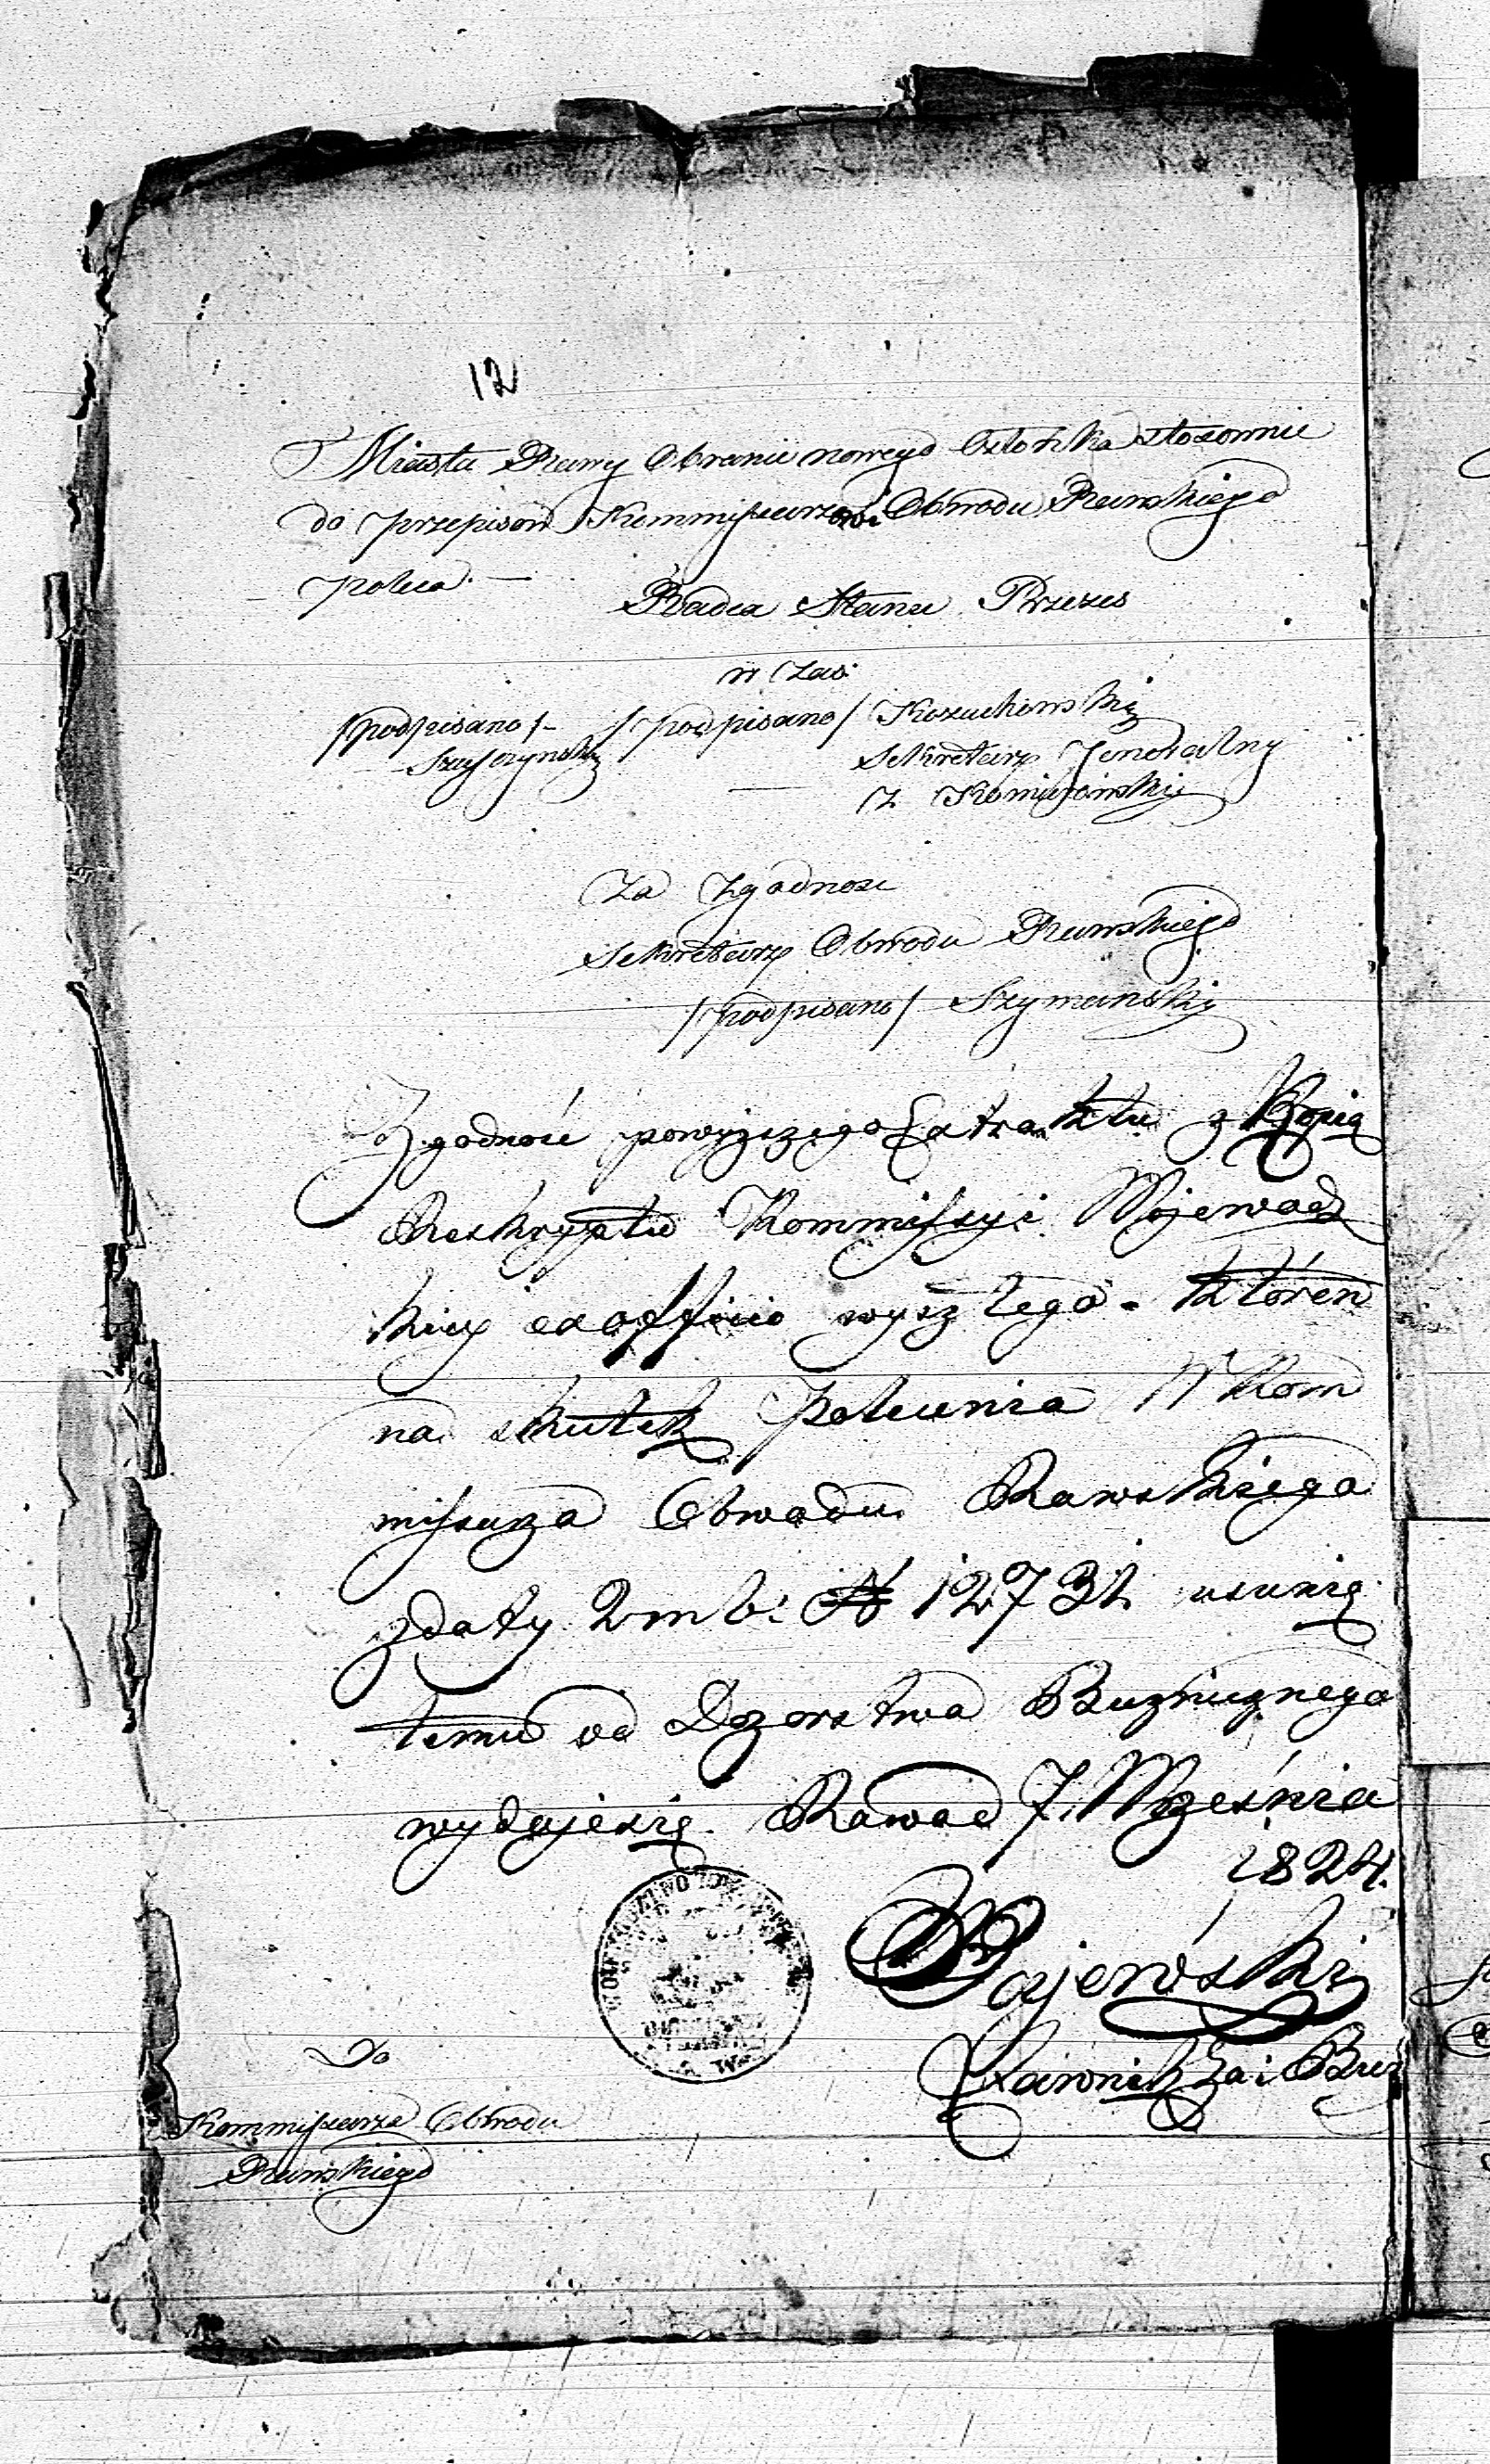 12
Miasta Rawy Obranie nowego Członka stosownie
do przepisów Kommissarzowi Obwodu Rawskiego
poleca. —
Radca Stanu Prezes
w Zas:
/podpisano/ Kożuchowski
/podpisano/-
Sekretarz Jeneralny
Z
Za Zgodność
Sekretarz Obwodu Rawskiego
/podpisano/ Szymański
Zgodność powyższego Extraktu z Kopią
Reskryptu Kommissyi Wojewodz
kiey exofficio wyszłego. któren
na skutek Polecenia W Kom
missarza Obwodu Rawskiego
z daty 2 m b: N 12731
temu od Dozorstwa Bużnicznego
wydaje się. Rawa d 7. Września
1824.
Gajewski
Ławnik Za: Bur
Do
Kommissarza Obwodu
Rawskiego